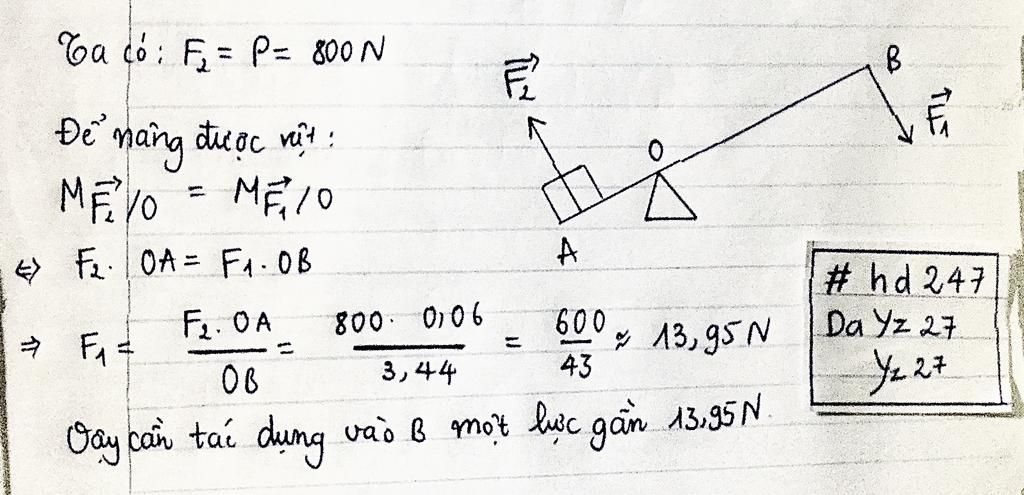 Ta có: F₂ = P = 800 N
Để nâng được vật:
M F₂→/O = M F₁→/O
⇔ F₂. OA = F₁. OB
⇒ F₁ = F₂. OA / OB = 800. 0,06 / 3,44 = 600 / 43 ≈ 13,95 N
Vậy cần tác dụng vào B một lực gần 13,95N.
F₂→
O
B
F₁→
A
# hd 247
Da Yz 27
Yz 27